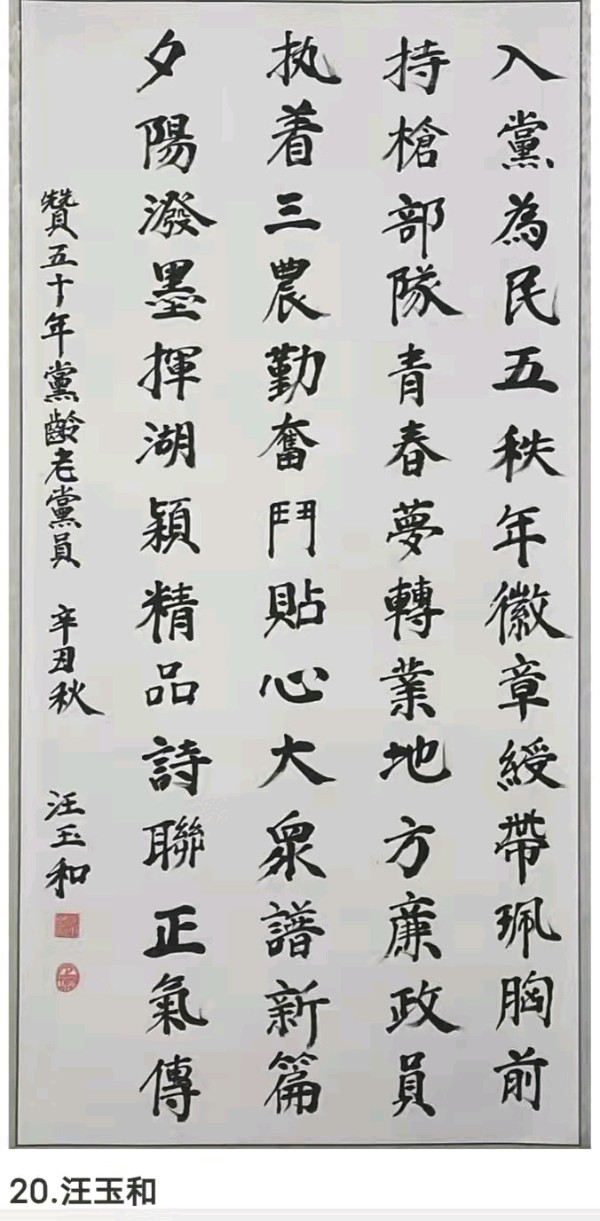 入黨為民五秩年徽章綬帶珮胸前
持槍部隊青春夢轉業地方廉政員
执着三農勤奮鬥貼心大眾譜新篇
夕陽潑墨揮湖穎精品詩聯正氣傳
贊五十年黨齡老黨員 辛丑秋 汪玉和
20.汪玉和